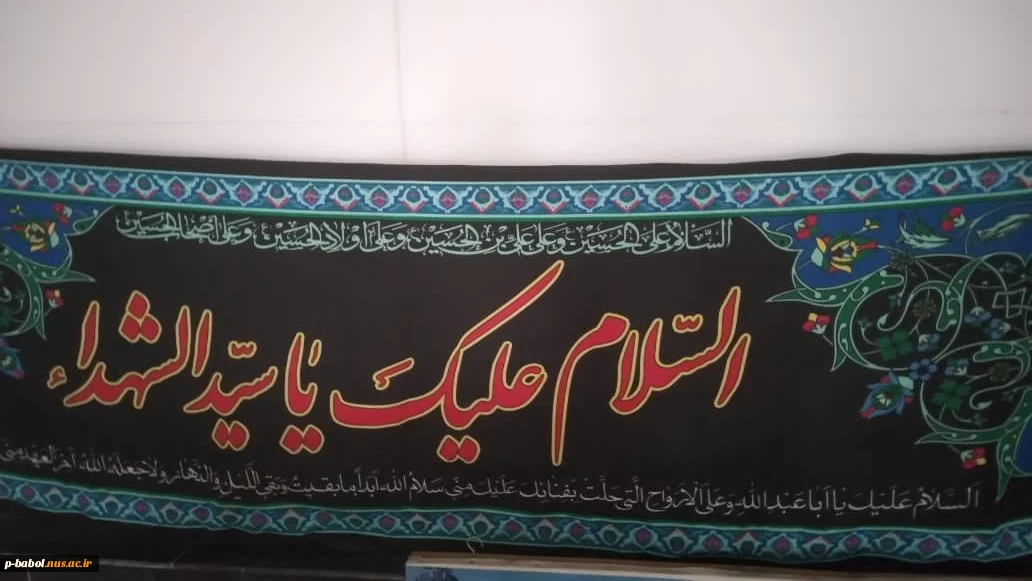 السَّلامُ عَلَی الحُسَیْن وَ عَلی عَلیِّ بْنِ الحُسَیْن وَ عَلی اَوْلادِ الحُسَیْن وَ عَلی اَصْحابِ الحُسَیْن
السّلام علیکَ یٰا سیّد الشهداء
اَلسَّلامُ عَلَیْكَ یا اَبا عَبدِ اللهِ وَ عَلَی الْاَرْواحِ الَّتی حَلَّتْ بِفِنائِكَ عَلَیْكَ مِنّی سَلامُ اللهِ اَبَداً ما بَقیتُ وَ بَقِیَ اللَّیْلُ وَ النَّهارُ وَ لا جَعَلَهُ اللهُ آخِرَ الْعَهْدِ مِنّی
p-babol.nus.ac.ir